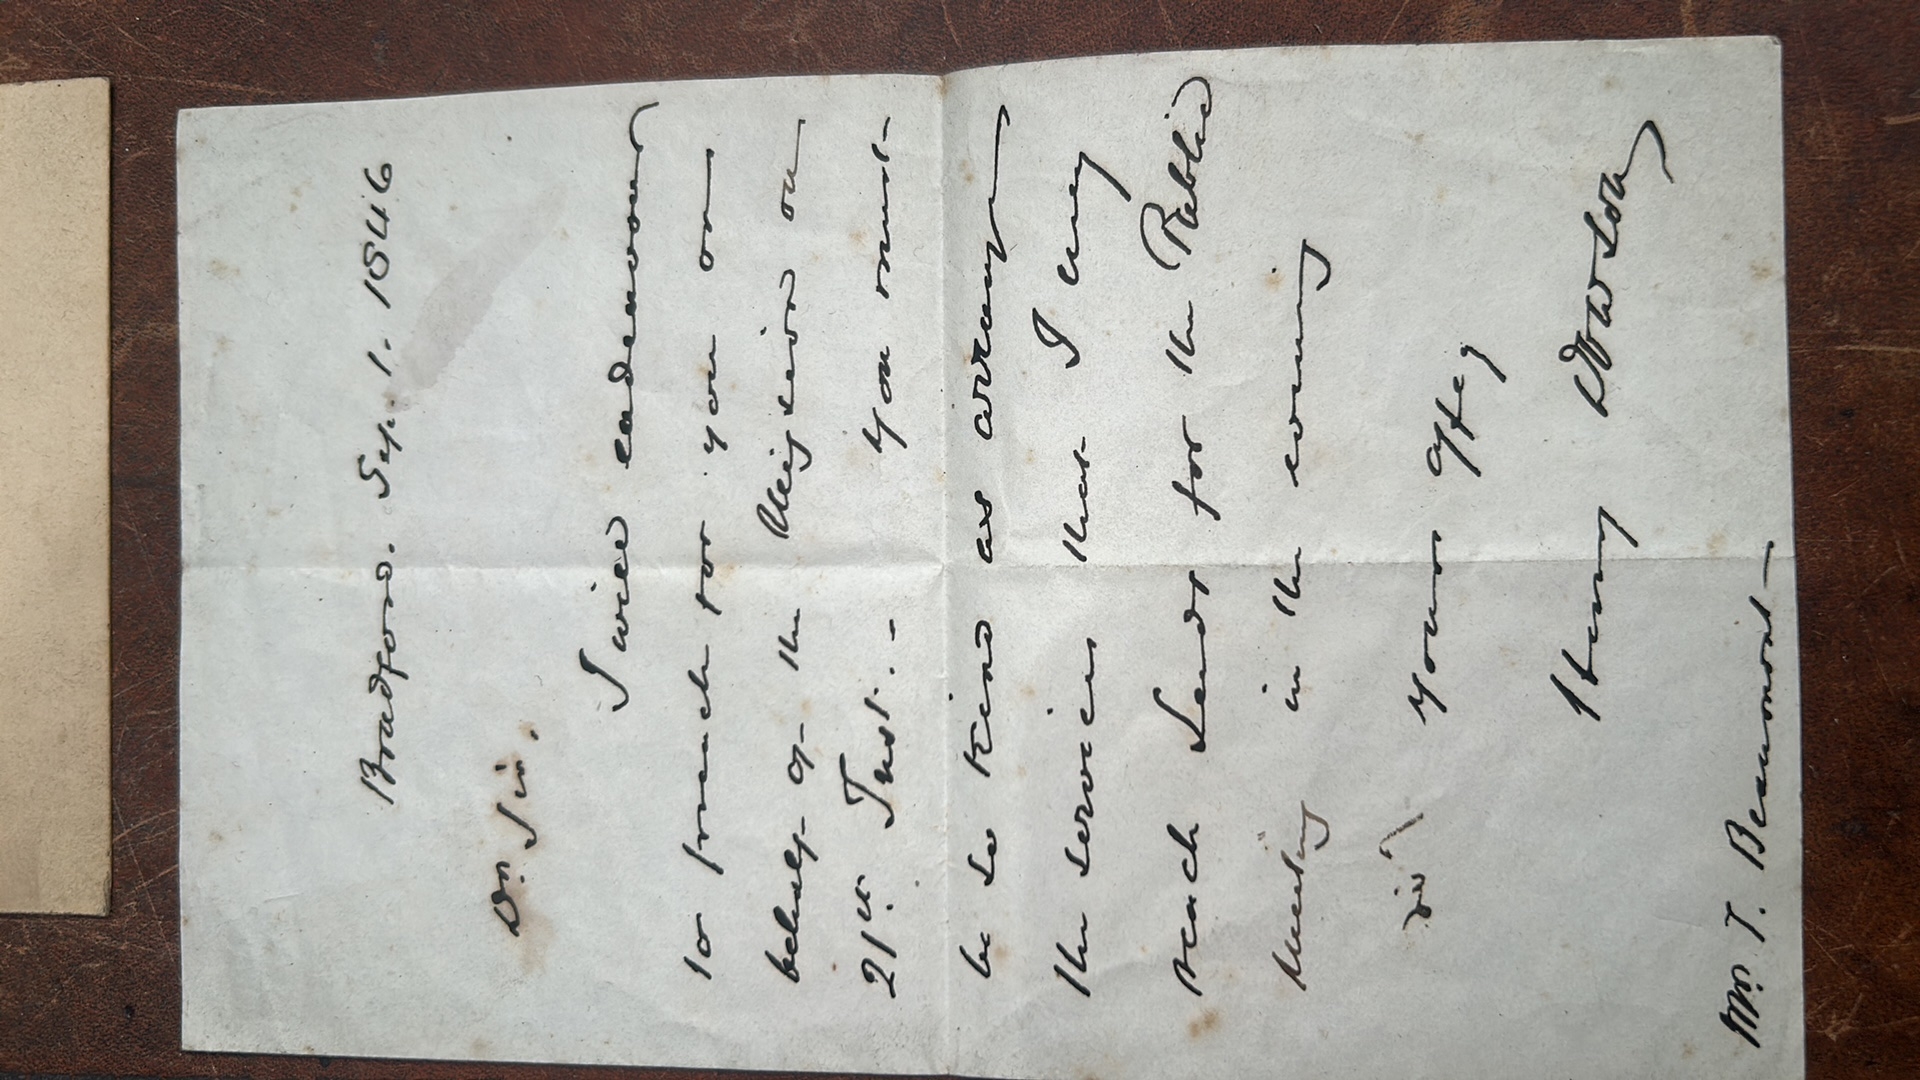 Bradford. Sep. 1. 1846
Dr. Sir.
I will endeavour
to preach for you on
behalf of the Mission on
21st Inst. - You must
be so kind as arrange
the services that I may
reach Leeds for the Public
Meeting in the evening
Yours
Henry Dowson
Mr. T. Beaumont